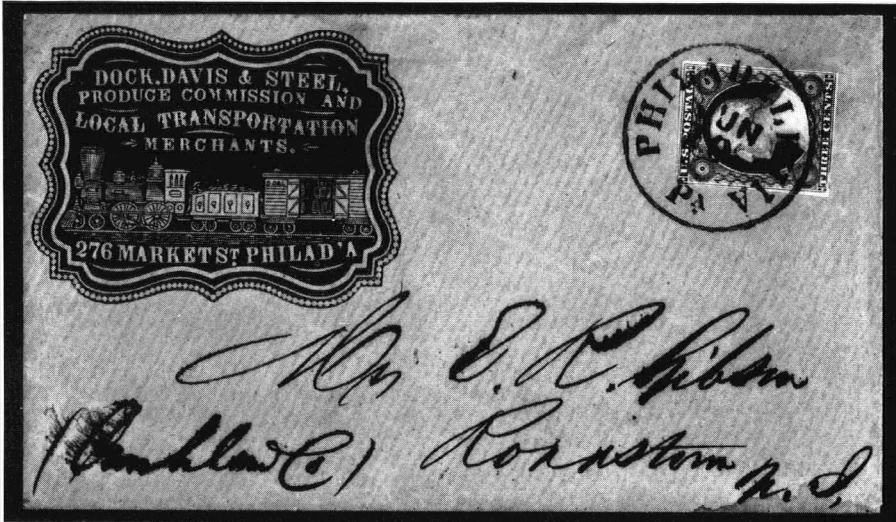 DOCK, DAVIS & STEEL,
PRODUCE COMMISSION AND
LOCAL TRANSPORTATION
MERCHANTS.
276 MARKET ST PHILAD'A
PHILADELPHIA Pa
JUN
U.S. POSTAGE
THREE CENTS
E. R. Gibson
(Cumberland Co)
N. J.